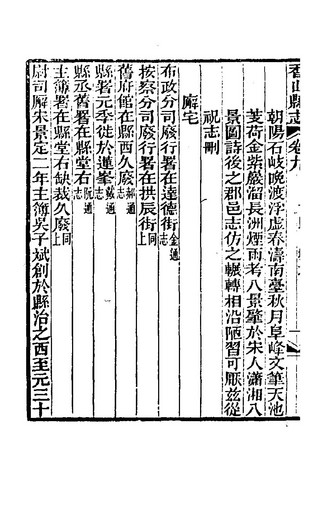 香山縣志 卷九
朝陽石岐晚渡浮虛春濤南臺秋月阜峰文筆天池
芰荷金紫巖溜長洲煙雨考八景肇於朱人瀟湘八
景圖詩後之郡邑志仿之輾轉相沿陋習可厭茲從
祝志刪
廨宅
布政分司廢行署在達德街金通志
按察分司廢行署在拱辰街同上
舊府館在縣西久廢郝通志
縣署元季徙於蓮峯戴通志
縣丞舊署在縣堂右阮通志
主簿署在縣堂右缺裁久廢同上
尉司廨宋景定二年主簿吳子斌創於縣治之西至元三十